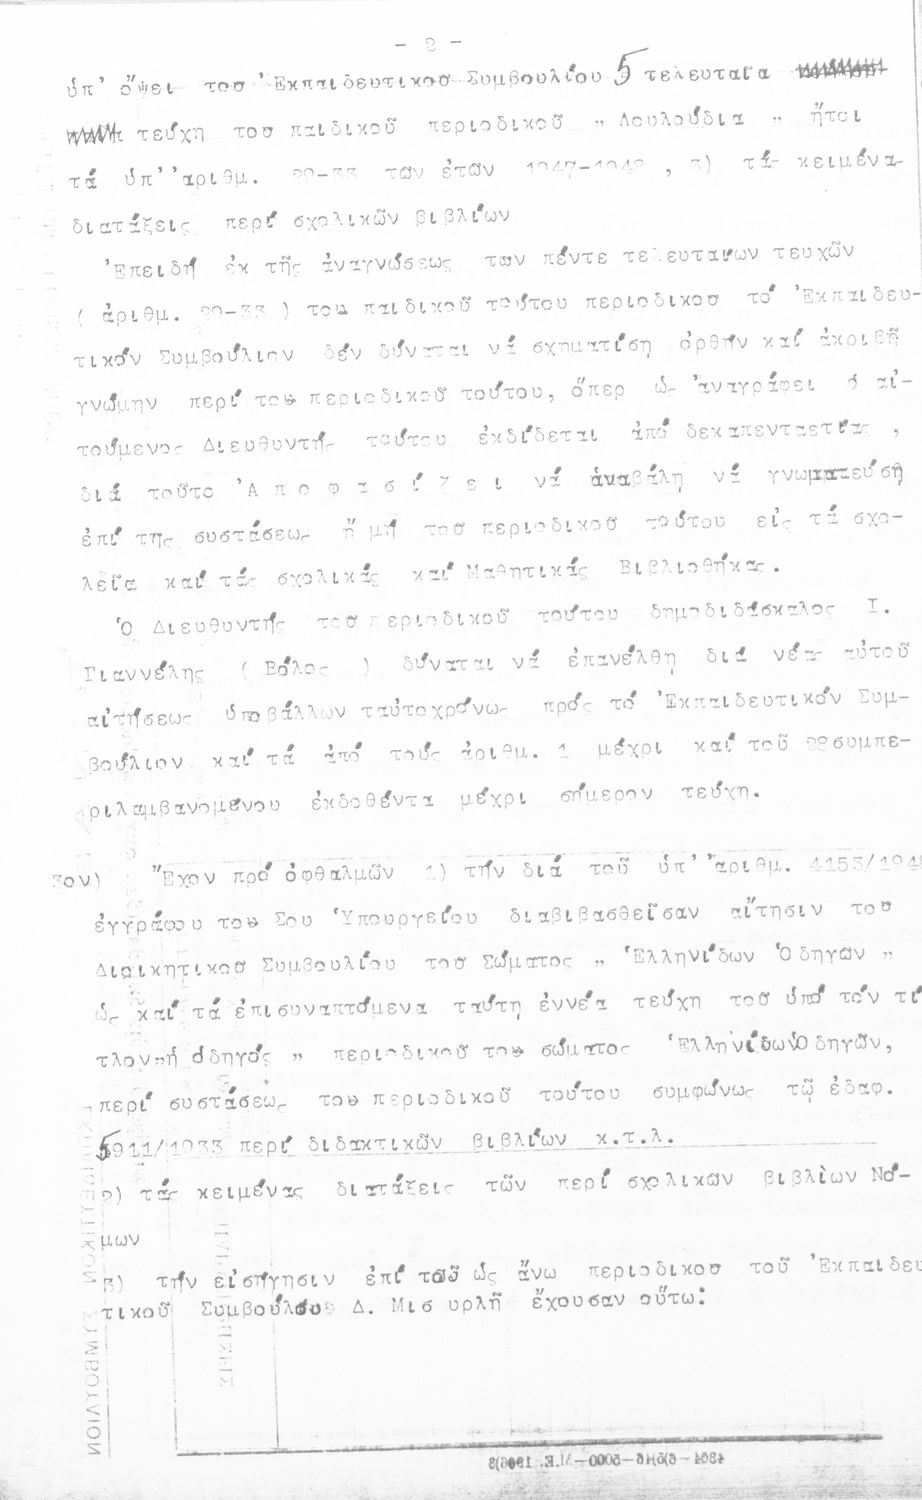 - 2 -
ὑπ' ὄψει τοῦ Ἐκπαιδευτικοῦ Συμβουλίου 5 τελευταῖα
τεύχη τοῦ παιδικοῦ περιοδικοῦ „ Λουλούδια „ ἤτοι
τά ὑπ' ἀριθμ. 29-33 τῶν ἐτῶν 1947-1948 , 3) τάς κειμένας
διατάξεις περί σχολικῶν βιβλίων
Ἐπειδή ἐκ τῆς ἀναγνώσεως τῶν πέντε τελευταίων τευχῶν
( ἀριθμ. 29-33 ) τοῦ παιδικοῦ τούτου περιοδικοῦ τό Ἐκπαιδευ-
τικόν Συμβούλιον δέν δύναται νά σχηματίση ὀρθήν καί ἀκριβῆ
γνώμην περί τοῦ περιοδικοῦ τούτου, ὅπερ ὡς ἀναγράφει ὁ αἰ-
τούμενος Διευθυντής τούτου ἐκδίδεται ἀπό δεκαπενταετίας ,
διά τοῦτο Ἀ π ο φ α σ ί ζ ε ι νά ἀναβάλη νά γνωματεύση
ἐπί τῆς συστάσεως ἤ μή τοῦ περιοδικοῦ τούτου εἰς τά σχο-
λεῖα καί τάς σχολικάς καί Μαθητικάς Βιβλιοθήκας.
Ὁ Διευθυντής τοῦ περιοδικοῦ τούτου δημοδιδάσκαλος Ι.
Γιαννέλης ( Βόλος ) δύναται νά ἐπανέλθη διά νέας αὐτοῦ
αἰτήσεως ὑποβάλλων ταὐτοχρόνως πρός τό Ἐκπαιδευτικόν Συμ-
βούλιον καί τά ἀπό τούς ἀριθμ. 1 μέχρι καί τοῦ 28συμπε-
ριλαμβανομένου ἐκδοθέντα μέχρι σήμερον τεύχη.
3ον) Ἔχον πρό ὀφθαλμῶν 1) τήν διά τοῦ ὑπ' ἀριθμ. 4153/194
ἐγγράφου τοῦ Σου Ὑπουργείου διαβιβασθεῖσαν αἴτησιν τοῦ
Διοικητικοῦ Συμβουλίου τοῦ Σώματος „ Ἑλληνίδων Ὁδηγῶν „
ὡς καί τά ἐπισυναπτόμενα ταύτη ἐννέα τεύχη τοῦ ὑπό τόν τί
τλον„ἡ ὁδηγός „ περιοδικοῦ τοῦ σώματος Ἑλληνίδων Ὁδηγῶν,
περί συστάσεως τοῦ περιοδικοῦ τούτου συμφώνως τῷ ἐδαφ.
5911/1933 περί διδακτικῶν βιβλίων κ.τ.λ.
2) τάς κειμένας διατάξεις τῶν περί σχολικῶν βιβλὶων Νό-
μων
3) τήν εἰσήγησιν ἐπί τοῦ ὡς ἄνω περιοδικοῦ τοῦ Ἐκπαιδευ
τικοῦ Συμβούλου Δ. Μισ υρλῆ ἔχουσαν οὕτω: